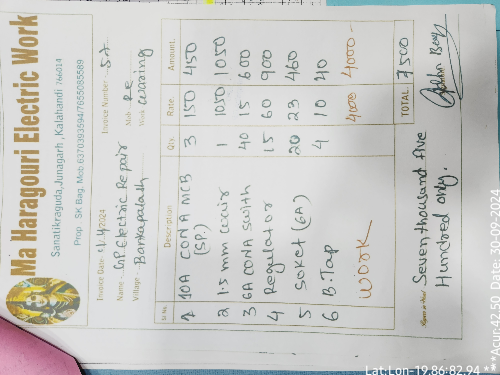 Ma Haragouri Electric Work
Sanatikraguda, Junagarh, Kalahandi 766014
Prop. SK Bag, Mob. 6370393594/7655085589
Invoice Date /4/2024 Invoice Number 57
Name GP Electric Repair Mob. Re
Village Bankapalash Work Waring
Sl No. Description Qty. Rate Amount
1 10A CONA MCB (SP) 3 150 450
2 1.5 mm 1 1050 1050
3 6A CONA Swith 40 15 600
4 Regulator 15 60 900
5 Soket (6A) 20 23 460
6 B. Tap 4 10 40
Work 4000 4000
TOTAL 7500
Seventhousand five
Hundred only.
Lat:Lon-19.86:82.94 ***Acur:42.50 Das: 30.09.2024